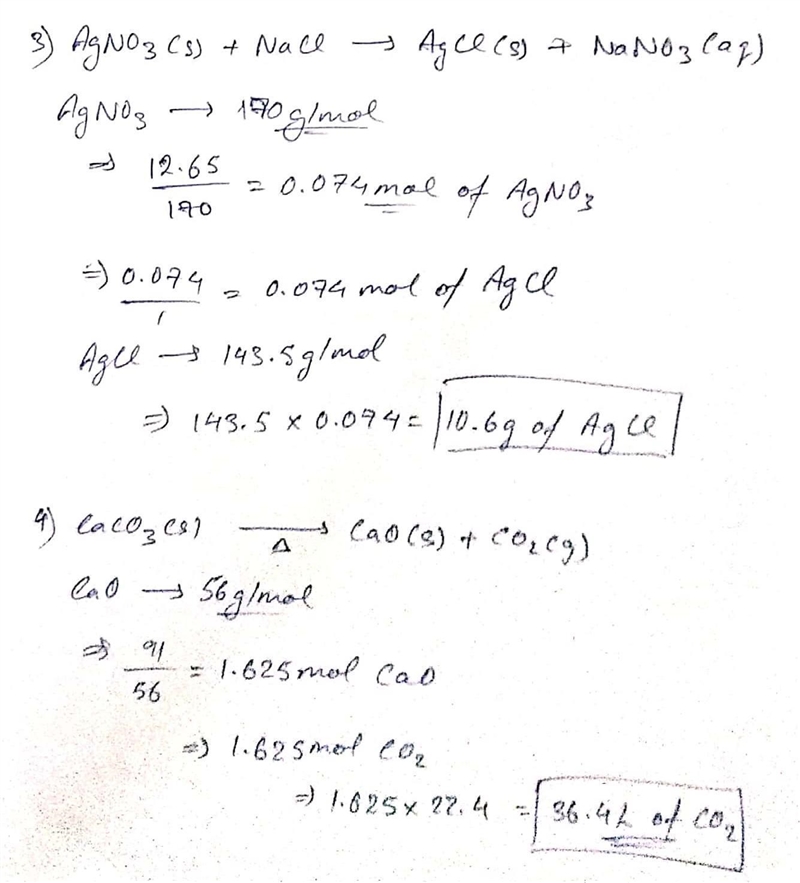 3) AgNO₃(s) + NaCl → AgCl(s) + NaNO₃(aq)
AgNO₃ → 170 g/mol
⇒ 12.65/170 = 0.074 mol of AgNO₃
⇒ 0.074/1 = 0.074 mol of AgCl
AgCl → 143.5 g/mol
⇒ 143.5 × 0.074 = 10.6g of AgCl
4) CaCO₃(s) →Δ CaO(s) + CO₂(g)
CaO → 56 g/mol
⇒ 91/56 = 1.625 mol CaO
⇒ 1.625 mol CO₂
⇒ 1.625 × 22.4 = 36.4L of CO₂